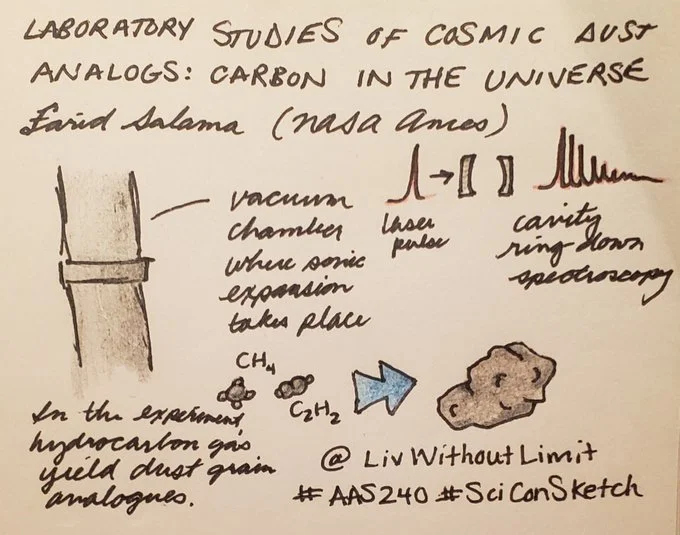 LABORATORY STUDIES OF COSMIC DUST
ANALOGS: CARBON IN THE UNIVERSE
Farid Salama (NASA Ames)
vacuum
chamber
where sonic
expansion
takes place
laser
pulse
cavity
ring-down
spectroscopy
CH4
C2H2
In the experiment,
hydrocarbon gas
yield dust grain
analogues.
@LivWithoutLimit
#AAS240 #SciConSketch